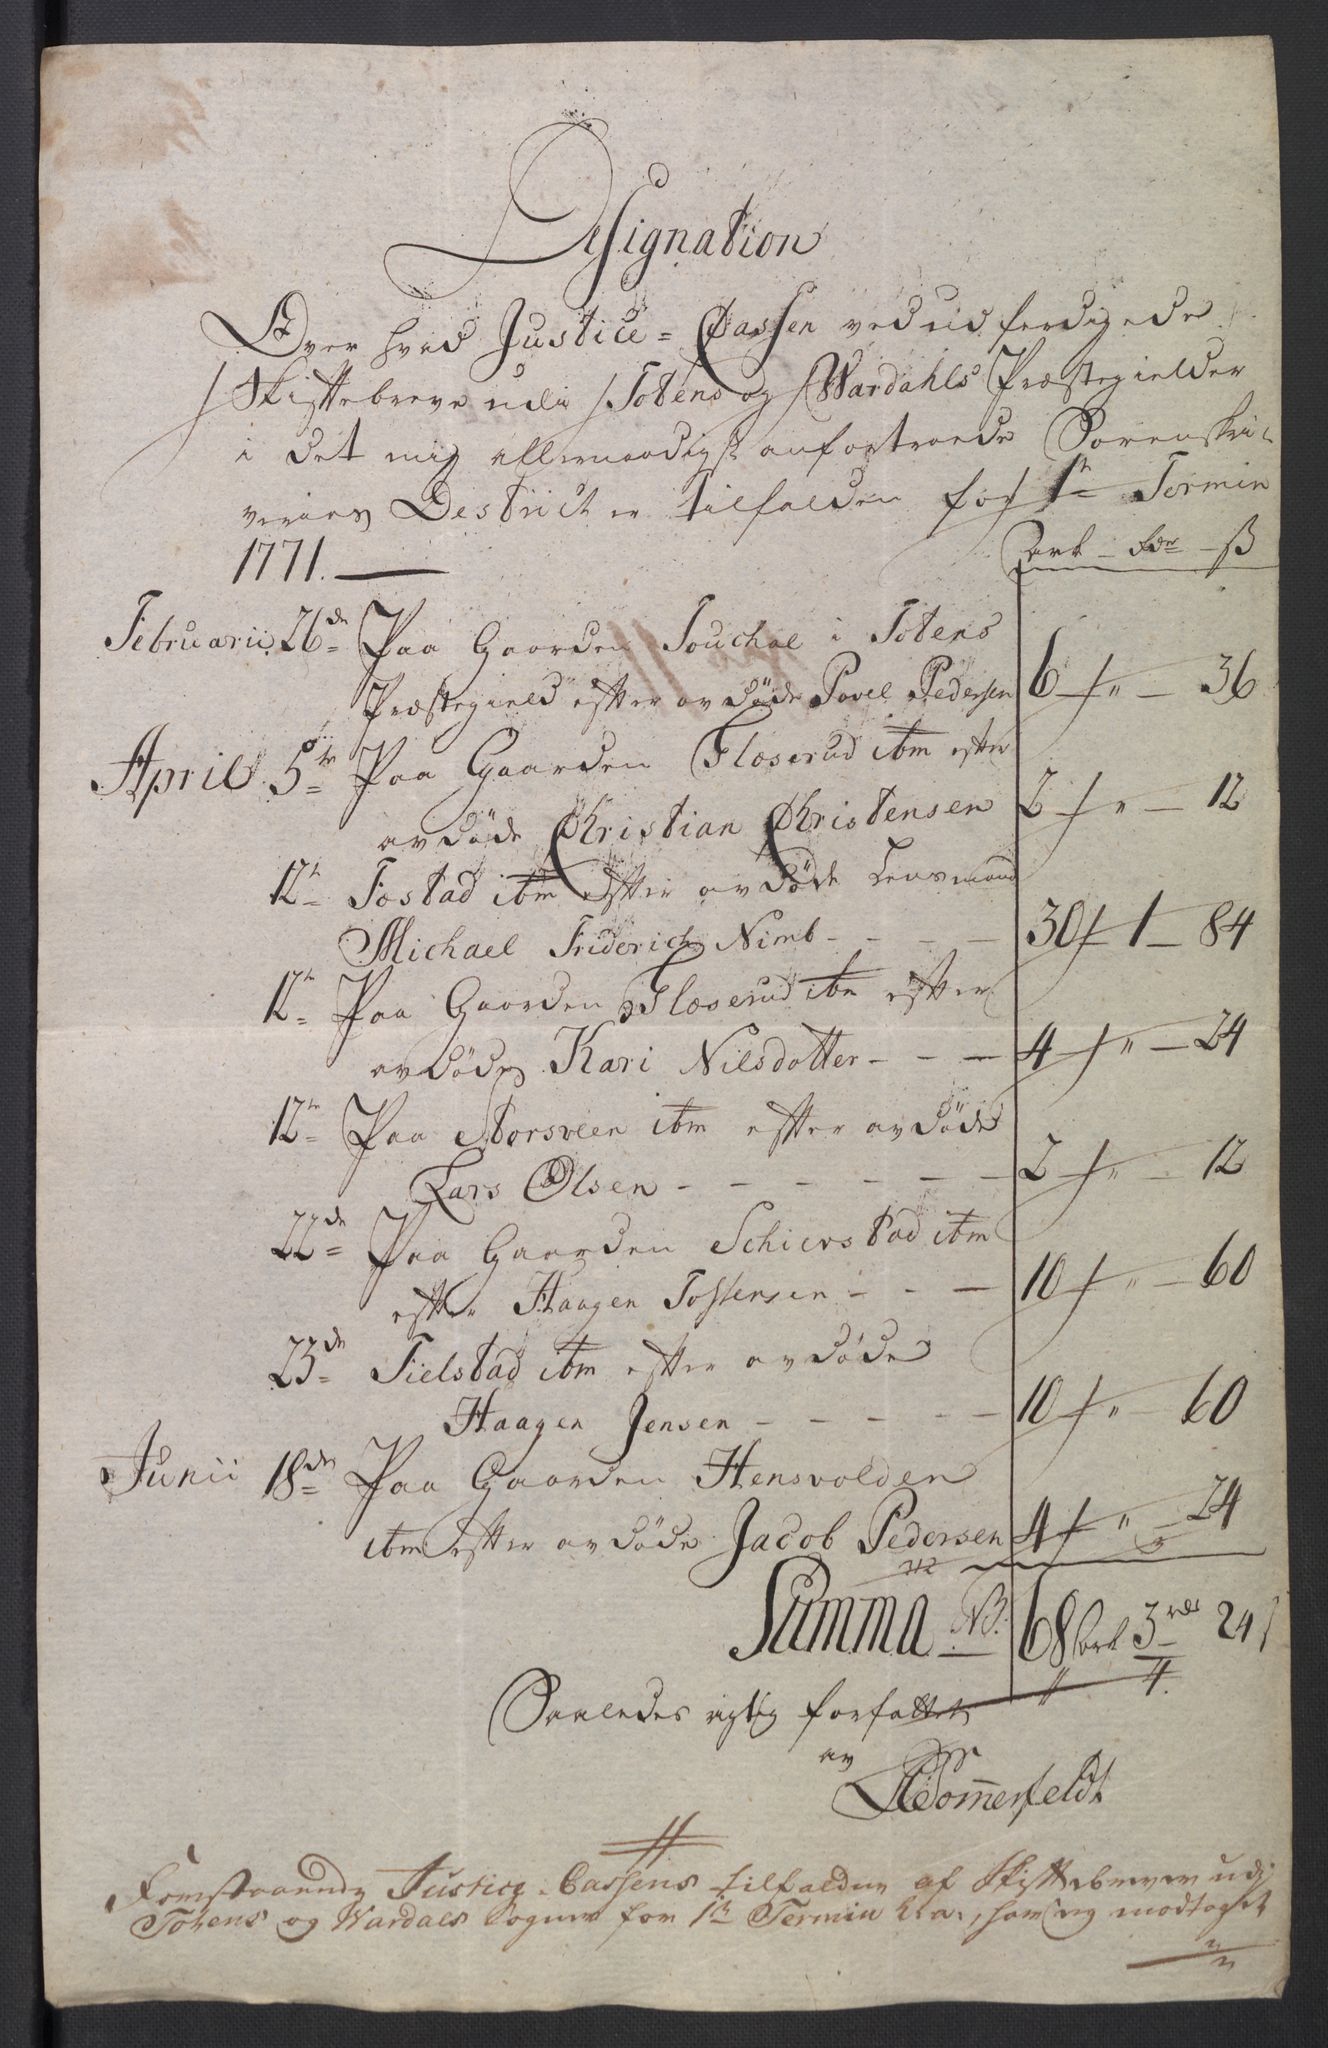 Designation
Over hvad Justice=Cassen ved udferdigede
Skiftebreve udi Totens og Wardahls Præstegielder
i det mig allernaadigst anfortroede Sorenskri-
veries Destrict er tilfalden for 1te Termin
1771. ark - Rdr - ß
Februarii 26de Paa Gaarden Souchal i Totens
Præstegield efter avdøde Povel Pedersen 6 " 36
April 5te Paa Gaarden Floserud ibm efter
avdøde Christian Christensen 2 " 12
12te Fostad ibm efter avdøde Lensmand
Michael Friderich Nimb - - - 30 1 - 84
12te Paa Gaarden Floserud ibm efter
avdøde Kari Nilsdotter - - - 4 " 24
12te Paa Storsveen ibm efter avdøde
Lars Olsen - - - - - - 2 " 12
22de Paa Gaarden Schierstad ibm
efter Haagen Tostensen - - - 10 " 60
23de Fielstad ibm efter avdøde
Haagen Jensen - - - - - 10 " 60
Junii 18de Paa Gaarden Hensvolden
ibm efter avdøde Jacob Pedersen 4 " 24
Summa NB. 68 ark 3 rdr 24 ß
" 4.
Saaledes rigtig forfattet
av
Sommerfeldt
Forestaaende Justice-Cassens tilfaldne af Skiftebrever udi
Totens og Wardals Sogner for 1te Termin h: a:, har jeg modtaget